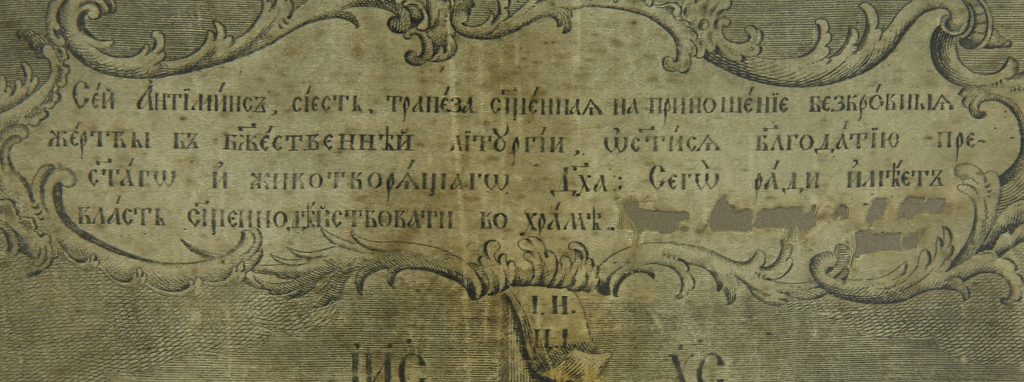 Се́й Антїми́нсъ, сїесть, трапе́за сщ҃е́нная на приноше́нїе безкро́вныѧ
же́ртвы въ бж҃е́ственнѣй лїтꙋргі́и, ѡст҃и́сѧ бл҃года́тїю пре-
ст҃а́гѡ и҆ животворѧ́щагѡ Дх҃а: Сегѡ̀ ра́ди и҆мѣ́етъ
вла́сть сщ҃еннодѣ́йствовати во хра́мѣ.
І. Н.
Ц. І.
ІИС ХС